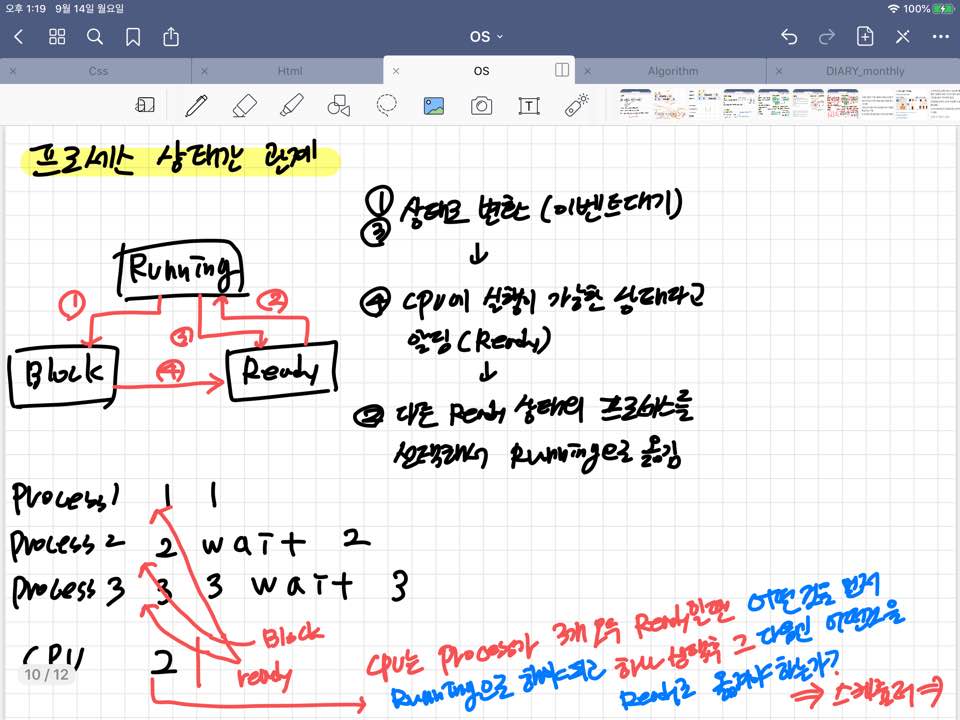 오후 1:19 9월 14일 월요일
100%
OS
Css
Html
OS
Algorithm
DIARY_monthly
프로세스 상태간 관계
Running
Block
Ready
①
②
③
④
①
③ 상태로 변환 (이벤트대기)
↓
④ CPU에 실행이 가능한 상태라고
알림 (Ready)
↓
② 다른 Ready 상태의 프로세스를
선택해서 Running으로 옮김
Process1 1 1
Process 2 2 wait 2
Process 3 3 3 wait 3
Block
ready
CPU 2
10 / 12
CPU는 Process가 3개 모두 Ready일땐 어떤것을 먼저
Running으로 해야되고 하나 선택후 그 다음엔 어떤것을
Ready로 옮겨야 하는가?
⇒ 스케줄러 ⇒